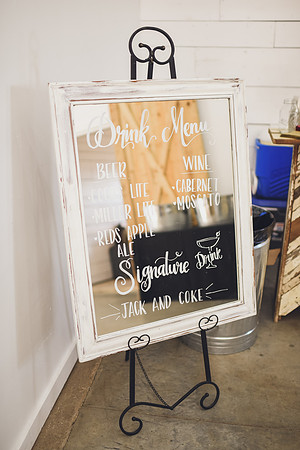 Drink Menu
BEER WINE
•COORS LITE •CABERNET
•MILLER LITE •MOSCATO
•REDS APPLE
ALE
Signature Drink
JACK AND COKE